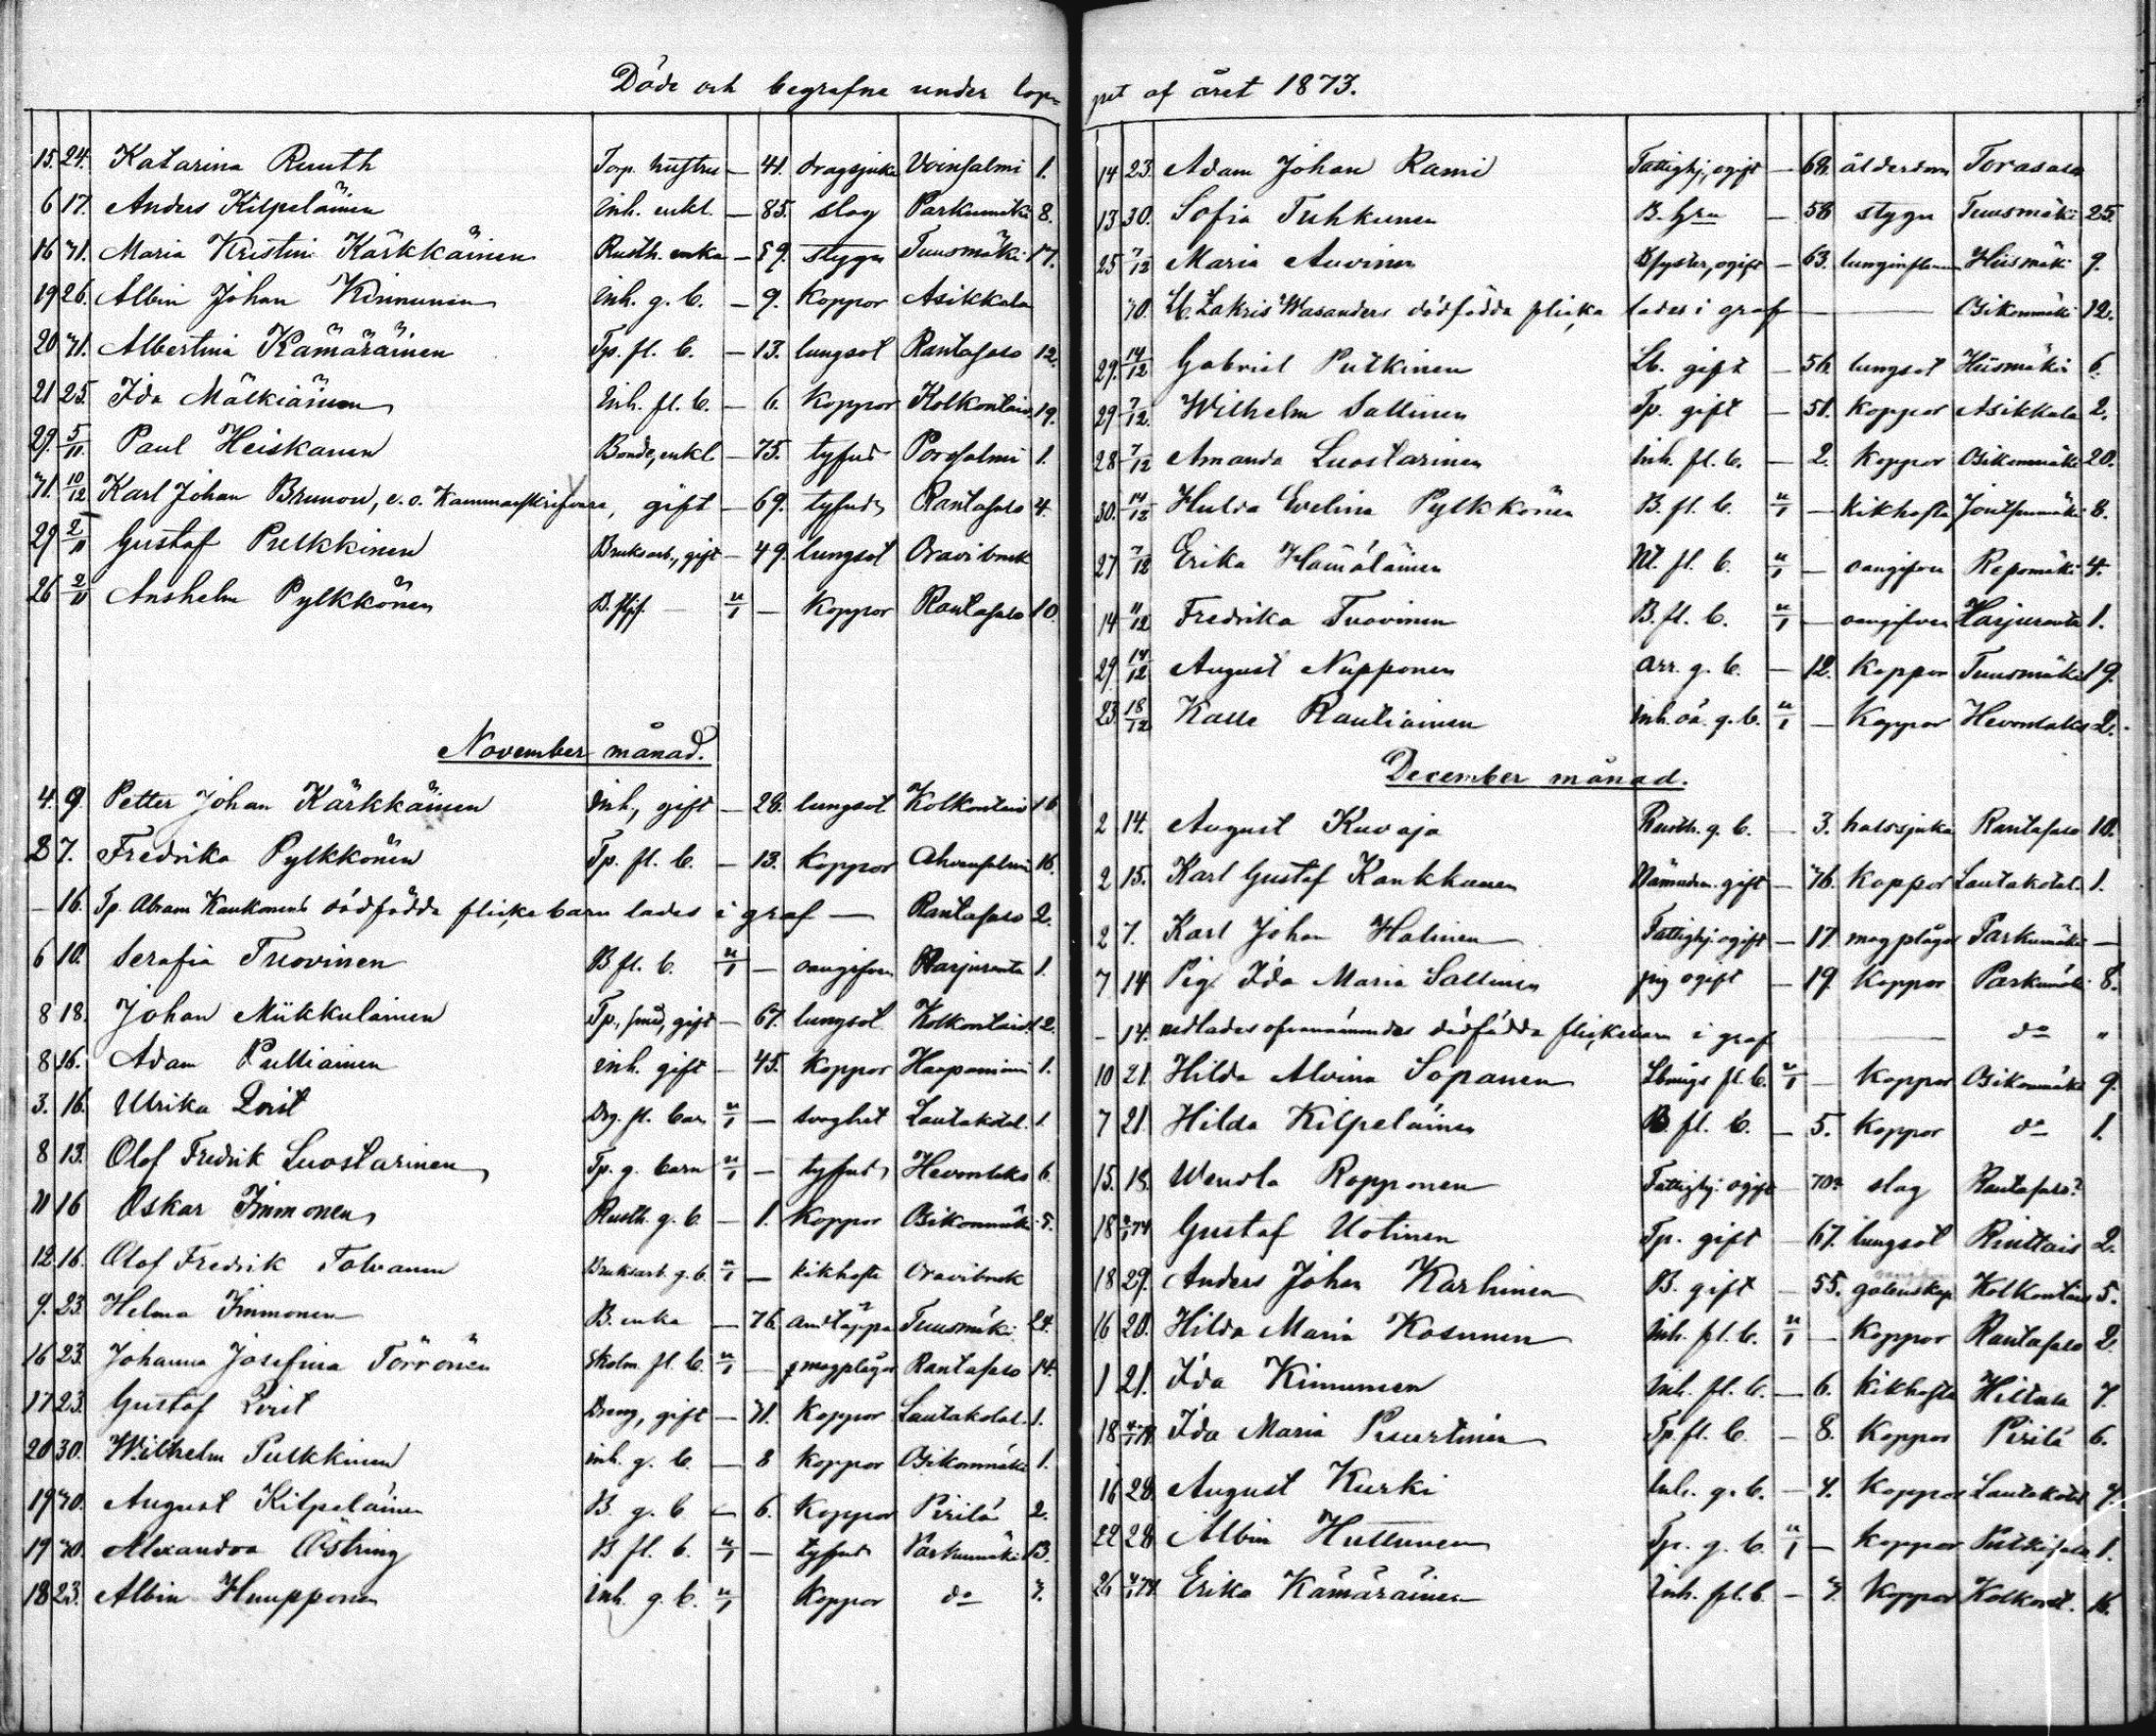 Döde och begrafne under lop-
15. 24. Katarina Ruuth Torp. hustru — 41. dragsjuka Voinsalmi 1.
6 17. Anders Kilpeläinen Inh. enkl. — 85. slag Parkumäki 8.
16 31. Maria Kristin Kärkkäinen Rusth. enka — 59. stygn Tuusmäki 17.
19 26. Albin Johan Kinnunen Inh. g. b. — 9. Koppor Asikkala
20 31. Albertina Kämäräinen Tp. fl. b. — 13. lungsot Rantasalo 12.
21 25. Ida Mälkiäinen Inh. fl. b. — 6. Koppor Kolkontais 19.
29. 5/11. Paul Heiskanen Bonde, enkl. — 75. tyfus Porosalmi 1.
31. 10/12 Karl Johan Brunou, e. o. Kammarskrifvare, gift — 69. tyfus Rantasalo 4.
29 2/11 Gustaf Pulkkinen Bruksarb., gift — 49. lungsot Oravibruk
26 2/11 Anshelm Pylkkönen B. — u/1 — Koppor Rantasalo 10.
November månad.
4. 9. Petter Johan Kärkkäinen Inh., gift — 28. lungsot Kolkontais 16
2 7. Fredrika Pylkkönen Tp. fl. b. — 13. Koppor Ahvensalmi 16.
— 16. Tp. Abram Kaukonens dödfödda flickebarn lades i graf — Rantasalo 2.
6 10. Serafia Tuovinen B fl. b. u/1 — oangifven Harjuranta 1.
8 18. Johan Miikkulainen Tp., smed, gift — 67. lungsot Kolkontais 12.
8 16. Adam Pulliainen Inh. gift — 45. Koppor Haapaniemi 1.
3. 16. Ulrika Qvist Drg. fl. barn u/1 — svaghet Lautakotal. 1.
8 13. Olof Fredrik Luostarinen Tp. g. barn u/1 — tyfus Hevonlaks 6.
11 16 Oskar Immonen Rusth. g. b. — 1. Koppor Osikonmäki 5.
12 16. Olof Fredrik Tolvanen Bruksarb. g. b. u/1 — kikhosta Oravibruk
9. 23. Helma Immonen B. enka — 76. andtäppa Tuusmäki 24.
16 23. Johanna Josefina Törrönen Skolm. fl. b. u/1 — magplågor Rantasalo 14.
17 23. Gustaf Qvist Dreng, gift — 71. Koppor Lautakotal. 1.
20 30. Wilhelm Pulkkinen inh. g. b. — 8 Koppor Osikonmäki 1.
19 30. August Kilpeläinen B. g. b — 6. Koppor Pirilä 2.
19 30. Alexandra Östring B fl. b. u/1 — tyfus Parkumäki 13.
18 23. Albin Huupponen inh. g. b. u/1 Koppor do 7.
pet af året 1873.
14 23. Adam Johan Rami Fattighj., ogift — 68. ålderdom Torasalo
13 30. Sofia Tuhkunen B. hru — 58 stygn Tuusmäki 25.
25 7/12 Maria Auvinen B syster, ogift — 63. lunginflamm Hiismäki 9.
30. Lb. Zakris Wasanders dödfödda flicka lades i graf — Osikonmäki 12.
29. 14/12 Gabriel Putkinen Lb. gift — 56. lungsot Hiismäki 6.
29 7/12. Wilhelm Sallinen Tp. gift — 51. Koppor Asikkala 2.
28 7/12 Amanda Luostarinen Inh. fl. b. — 2. Koppor Osikonmäki 20.
30. 14/12 Hulda Evelina Pylkkönen B. fl. b. u/1 — kikhosta Joutsenmäki 8.
27 7/12 Erika Hämäläinen Nt. fl. b. u/1 — oangifven Repomäki 4.
14 11/12 Fredrika Tuovinen B. fl. b. u/1 — oangifven Harjuranta 1.
29. 14/12 August Nupponen Arr. g. b. — 12. Koppor Tuusmäki 19.
23 18/12 Kalle Rautiainen Inh. oä. g. b. u/1 — Koppor Hevonlaks 2.
December månad.
2 14. August Kuvaja Rusth. g. b. — 3. halssjuka Rantasalo 10.
2 15. Karl Gustaf Kankkunen Nämndem. gift — 76. Koppor Lautakotal. 1.
2 7. Karl Johan Halinen Fattighj. ogift — 17 magplågor Parkumäki —
7 14 Pig. Ida Maria Sallinen pig ogift — 19. Koppor Parkumäki 8.
- 14. nedlades ofvannämndas dödfödda flickebarn i graf — do "
10 21. Hilda Alvina Sopanen Lbmågs fl. b. u/1 — Koppor Osikonmäki 9.
7 21. Hilda Kilpeläinen B. fl. b. — 5. Koppor do 1.
15. 18. Wendla Ropponen Fattighj. ogift 70? slag Rantasalo?
18 74 Gustaf Uotinen Tp. gift — 67. lungsot Rinttais 2.
18 29. Anders Johan Karhinen B. gift — 55. galenskap Kolkontais 5.
16 20. Hilda Maria Kosunen Inh. fl. b. u/1 — Koppor Rantasalo 2.
1 21. Ida Kinnunen Inh. fl. b. — 6. Kikhosta Hiltula 7.
18 4/1 74. Ida Maria Puurtinen Tp. fl. b. — 8. Koppor Pirilä 6.
16 28. August Kurki Inh. g. b. — 4. Koppor Lautakotal 7.
22 28 Albin Huttunen Tp. g. b. u/1 — Koppor Putkisalo 1.
26 4/1 74. Erika Kämäräinen Inh. fl. b. — 7. Koppor Kolkont. 16.